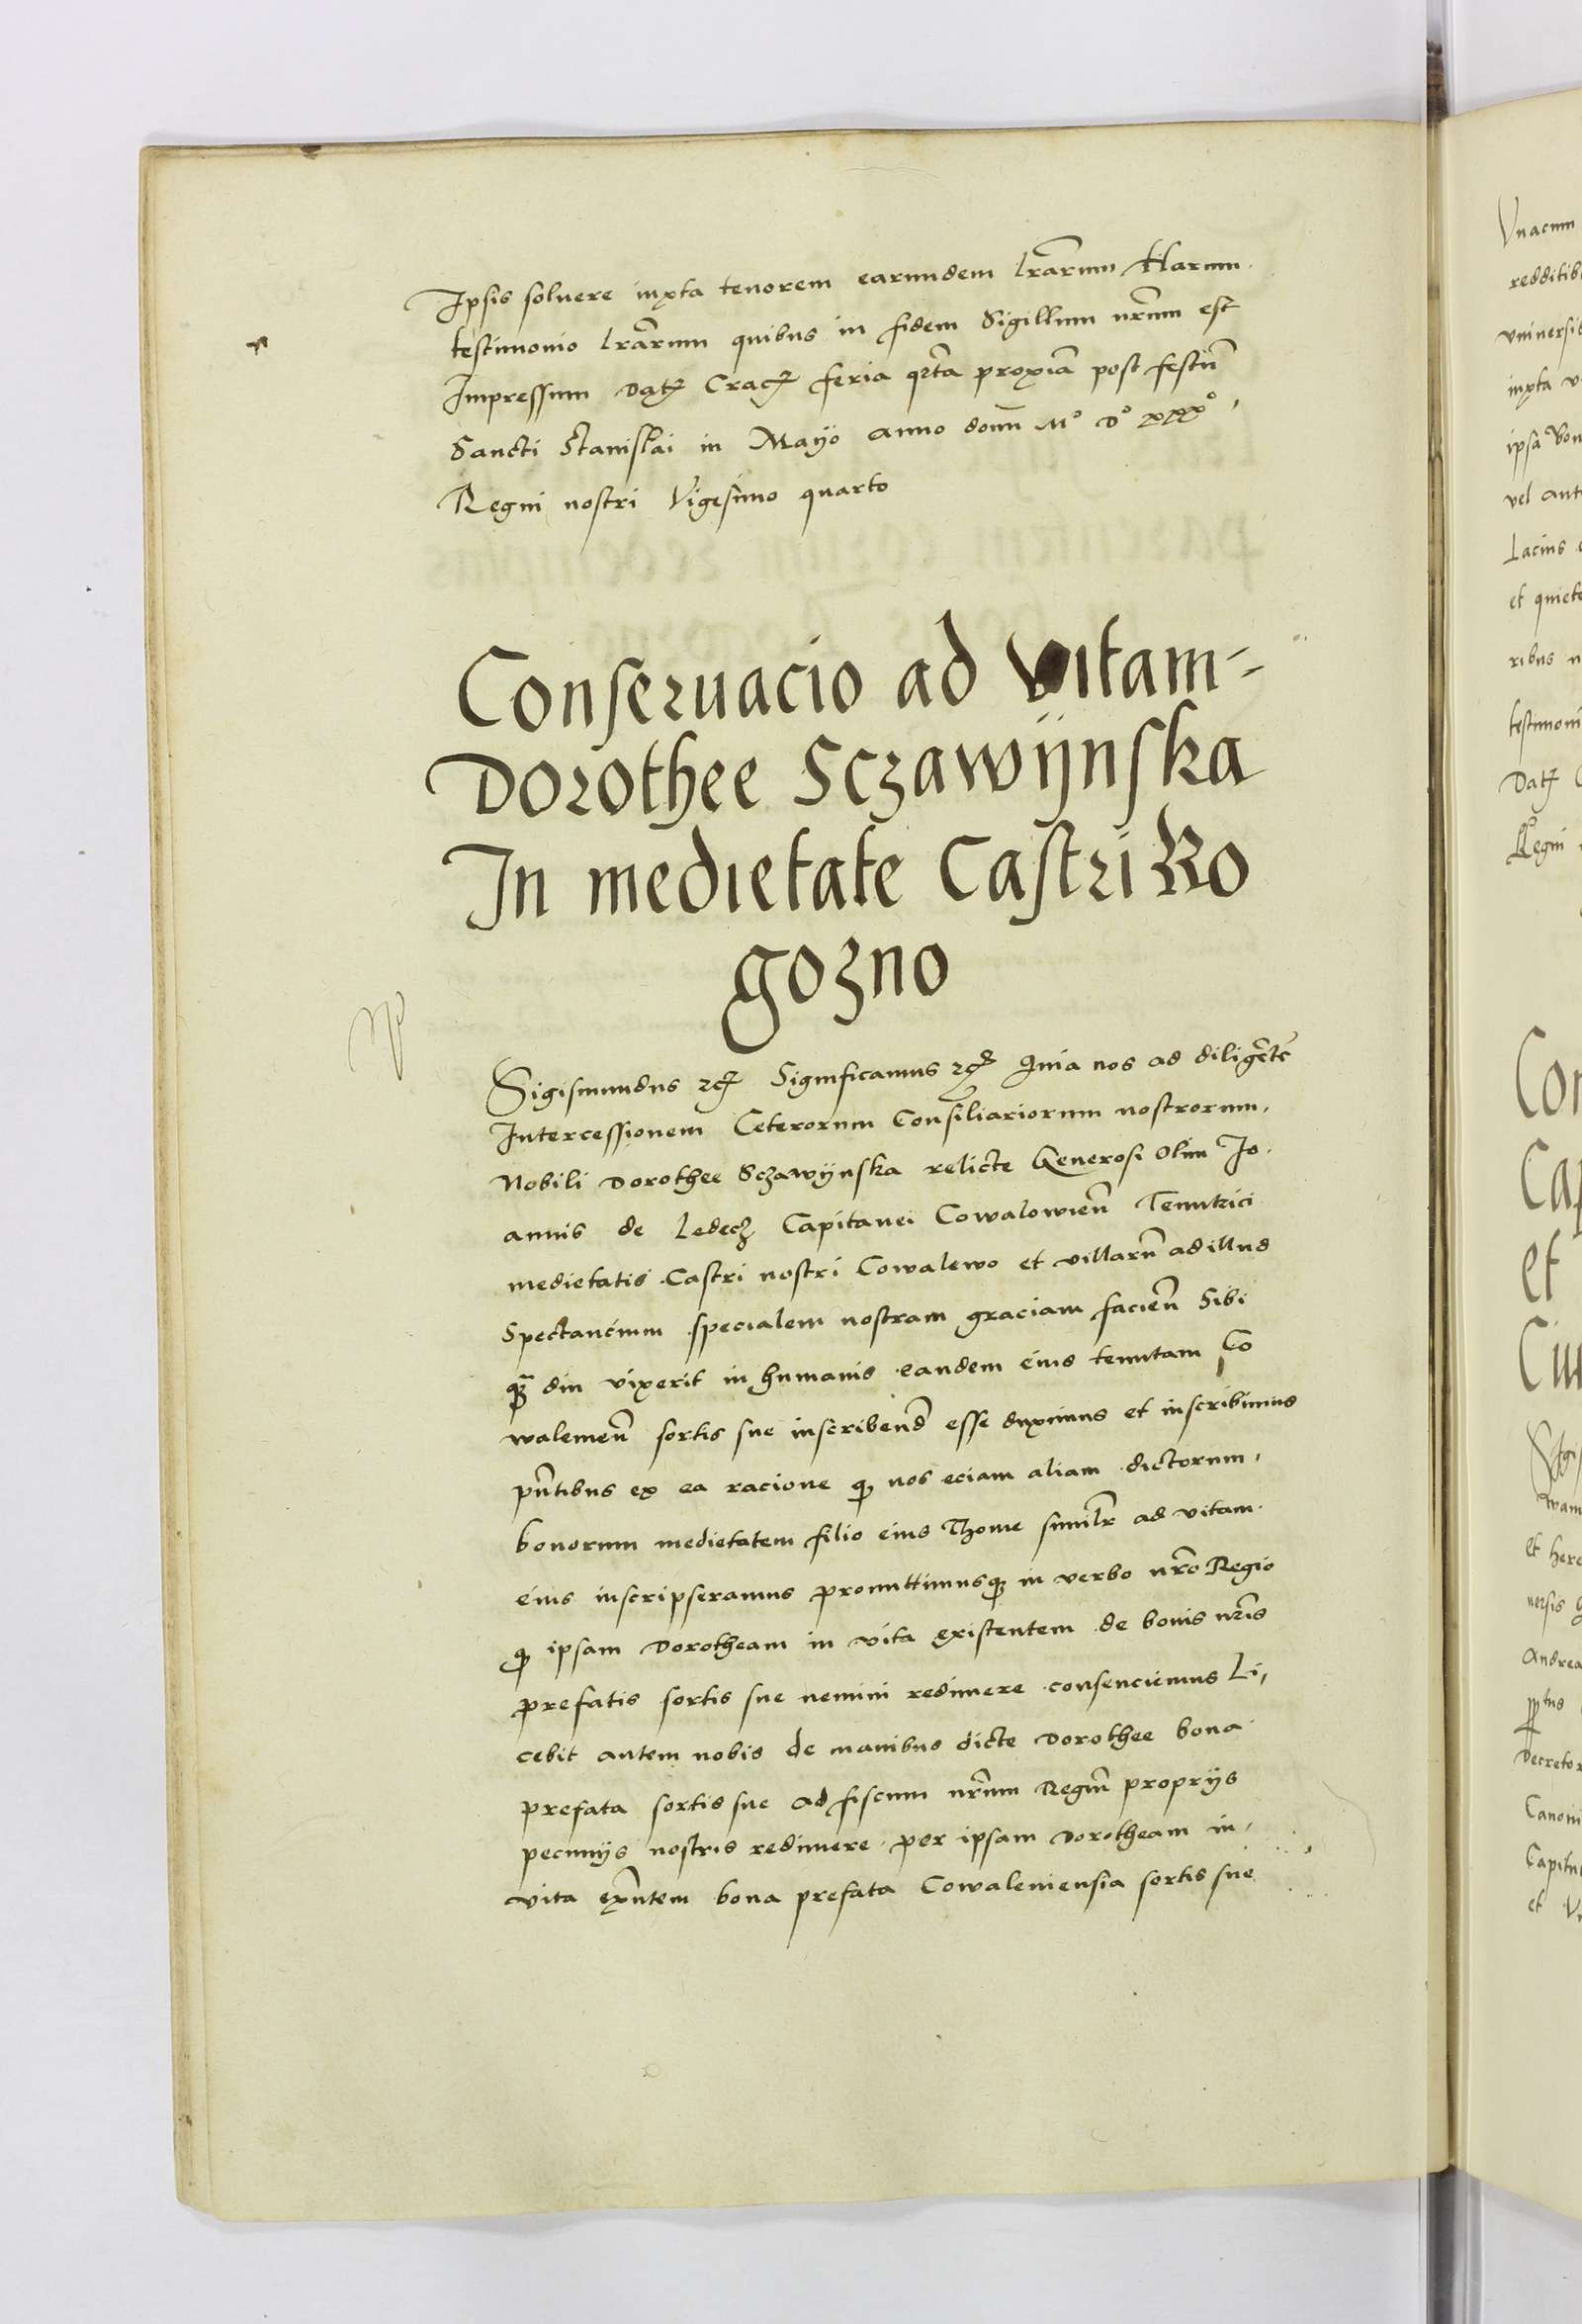 Ipsis soluere iuxta tenorem earundem lrãrum Harum
testimonio lrãrum quibus in fidem Sigillum nr̃um est
Impressum Datꝫ Cracꝫ feria qr̃ta proxiã post festũ
Sancti Stanislai in Mayo anno domĩ Mº Dº xxxº,
Regni nostri Vigesimo quarto
Conseruacio ad vitam=
Dorothee Sczawÿnska
In medietate Castri Ro
gozno
Sigismundus ⁊cꝫ Significamus ⁊cꝫ Quia nos ad diligẽtẽ
Intercessionem Ceterorum Consiliariorum nostrorum,
Nobili Dorothee Sczawÿnska relicte Generosi olim Jo.
annis de Ledecz Capitanei Cowalowieñ Tenutrici
medietatis Castri nostri Cowalewo et villarũ ad illud
Spectancium specialem nostram graciam facieñ Sibi
qꝫ̃ diu vixerit in humanis eandem eius tenutam Co
waleweñ sortis sue inscribend̃ esse duximus et inscribimus
pñtibus ex ea racione qꝫ nos eciam aliam dictorum,
bonorum medietatem filio eius Thome similr̃ ad vitam
eius inscripseramus promittimusqꝫ in verbo nr̃o Regio
qꝫ ipsam Dorotheam in vita existentem de bonis nr̃is
prefatis sortis sue nemini redimere consenciemus Li,
cebit autem nobis de manibus dicte Dorothee bona
prefata sortis sue ad fiscum nr̃um Regiũ proprÿs
pecunÿs nostris redimere per ipsam Dorotheam in,
vita exñtem bona prefata Cowaleuiensia sortis sue
Vnacum
redditib
vniuersis
iuxta v
ipsa Bon
vel ant
Lacius
et quiete
ribus n
testimoni
Datꝫ C
Regni
Con
Cap
et
Cui
Sigi
wam
et here
uersis
Andrea
Decretor
Canoni
Capitu
et V